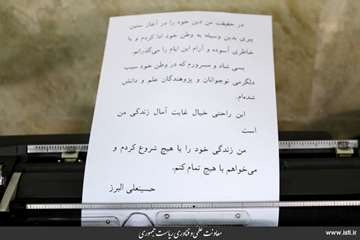 در حقیقت من دین خود را در آغاز سنین
پیری بدین وسیله به وطن خود ادا کردم و با
خاطری آسوده و آرام این ایام را می‌گذرانم.
بسی شاد و مسرورم که در وطن خود سبب
دلگرمی نوجوانان و پژوهندگان علم و دانش
شده‌ام.
این راحتی خیال غایت آمال زندگی من
است
من زندگی خود را با هیچ شروع کردم و
می‌خواهم با هیچ تمام کنم.
حسینعلی البرز
معاونت علمی و فناوری ریاست جمهوری
www.isti.ir